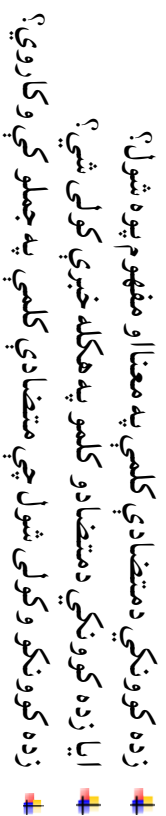 زده کوونکي دمتضادې کلمې په معنااو مفهوم پوه شول؟
ايا زده کوونکي دمتضادو کلمو په هکله خبرې کولی شي؟
زده کوونکو وکولی شول چې متضادې کلمې په جملو کې وکاروي؟